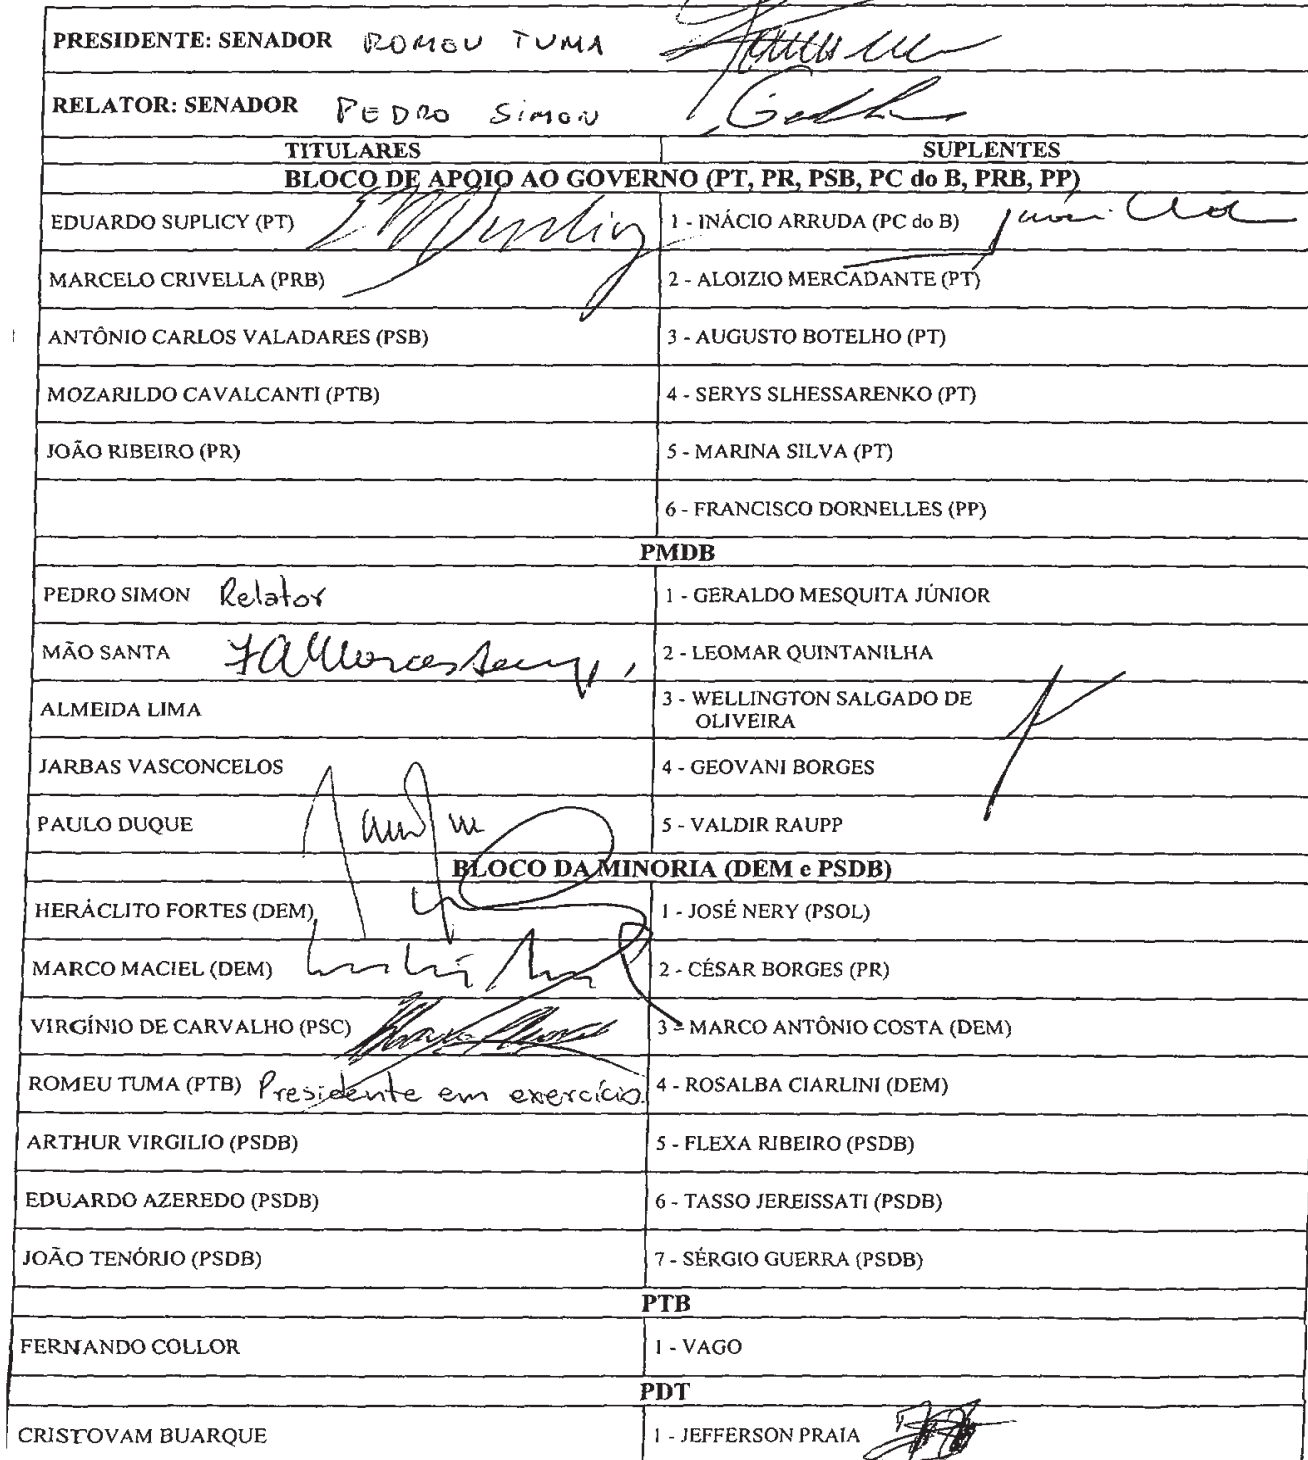 PRESIDENTE: SENADOR ROMEU TUMA
RELATOR: SENADOR PEDRO SIMON
TITULARES SUPLENTES
BLOCO DE APOIO AO GOVERNO (PT, PR, PSB, PC do B, PRB, PP)
EDUARDO SUPLICY (PT) 1 - INÁCIO ARRUDA (PC do B)
MARCELO CRIVELLA (PRB) 2 - ALOIZIO MERCADANTE (PT)
ANTÔNIO CARLOS VALADARES (PSB) 3 - AUGUSTO BOTELHO (PT)
MOZARILDO CAVALCANTI (PTB) 4 - SERYS SLHESSARENKO (PT)
JOÃO RIBEIRO (PR) 5 - MARINA SILVA (PT)
6 - FRANCISCO DORNELLES (PP)
PMDB
PEDRO SIMON Relator 1 - GERALDO MESQUITA JÚNIOR
MÃO SANTA 2 - LEOMAR QUINTANILHA
ALMEIDA LIMA 3 - WELLINGTON SALGADO DE
OLIVEIRA
JARBAS VASCONCELOS 4 - GEOVANI BORGES
PAULO DUQUE 5 - VALDIR RAUPP
BLOCO DA MINORIA (DEM e PSDB)
HERÁCLITO FORTES (DEM) 1 - JOSÉ NERY (PSOL)
MARCO MACIEL (DEM) 2 - CÉSAR BORGES (PR)
VIRGÍNIO DE CARVALHO (PSC) 3 - MARCO ANTÔNIO COSTA (DEM)
ROMEU TUMA (PTB) Presidente em exercício 4 - ROSALBA CIARLINI (DEM)
ARTHUR VIRGILIO (PSDB) 5 - FLEXA RIBEIRO (PSDB)
EDUARDO AZEREDO (PSDB) 6 - TASSO JEREISSATI (PSDB)
JOÃO TENÓRIO (PSDB) 7 - SÉRGIO GUERRA (PSDB)
PTB
FERNANDO COLLOR 1 - VAGO
PDT
CRISTOVAM BUARQUE 1 - JEFFERSON PRAIA